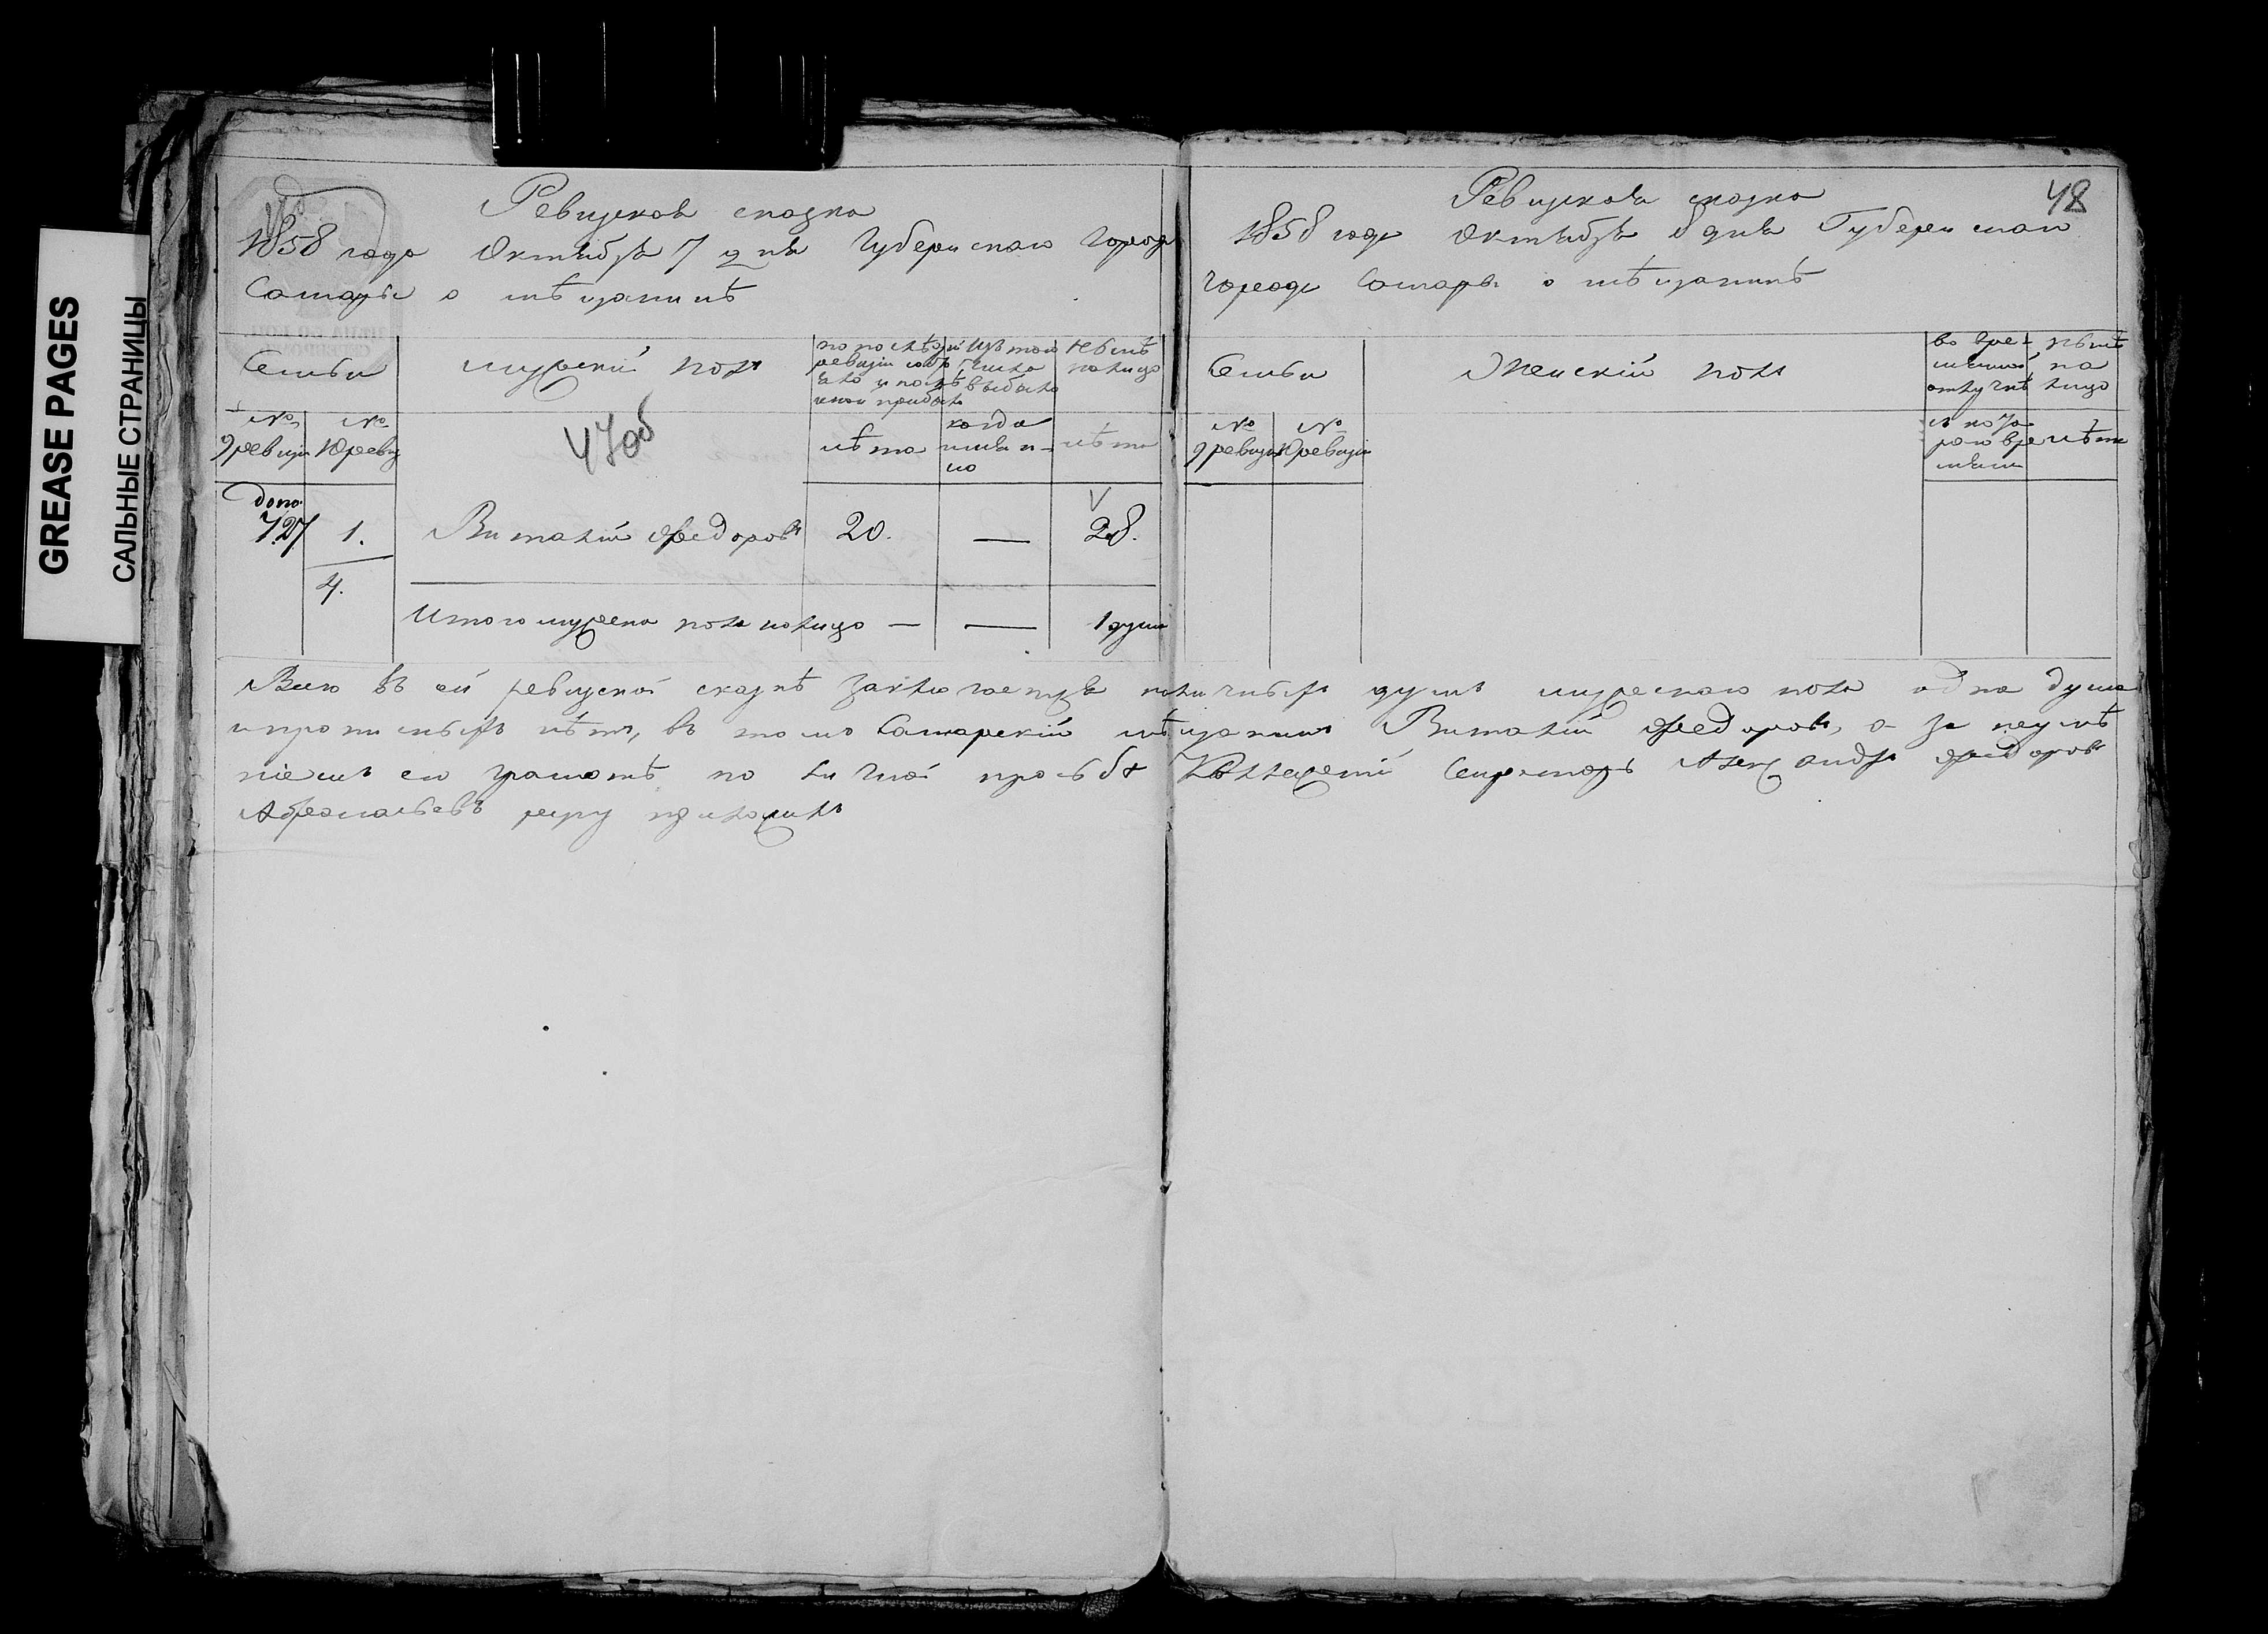 GREASE PAGES
САЛЬНЫЕ СТРАНИЦЫ
Ревизская сказка
1858 года Октября 7 дня Губернскаго города
Самары о мѣщанинѣ
Семьи
мужской полъ
по послѣдней ревизіи состояло и послѣ оной прибыло
Изъ того числа выбыло
Нынѣ на лицо
№ 9 ревизіи
№ 10 ревиз
47об
лѣта
когда имянно
лѣта
допо. 727
1.
Виталій Федоровъ
20.
—
28.
4.
Итого мужеска пола налицо — — 1 душа
Ревизская сказка
48
1858 года Октября 8 дня Губернскаго
города Самары о мѣщанинѣ
Семьи
Женскій полъ
во временной отлучкѣ
нынѣ на лицо
№ 9 ревизіи
№ 10 ревизіи
съ котораго времяни
лѣта
Всего въ сей ревизской сказкѣ заключается наличныхъ душъ мужескаго пола одна душа
и прописныхъ нѣтъ, въ томъ Самарскій мѣщанинъ Виталій Федоровъ, а за неумѣ
ніемъ его грамотѣ по личной прозьбѣ Коллежскій Секретарь Александръ Федоровъ
руку приложилъ